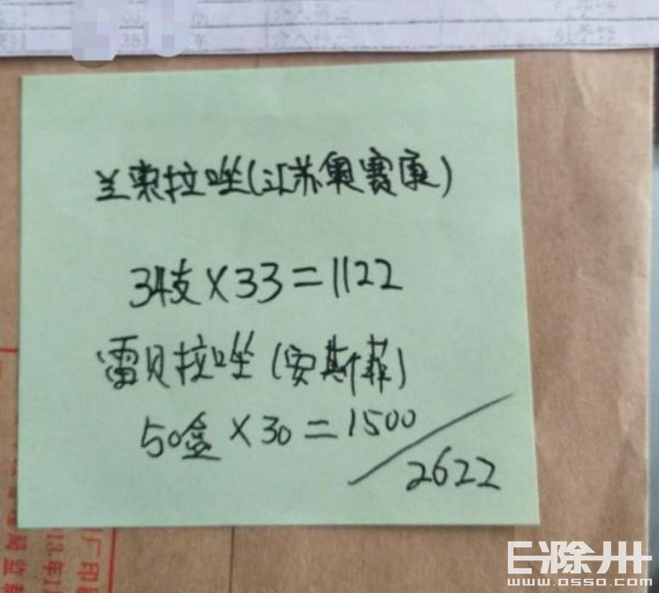 兰索拉唑(江苏奥赛康)
34支×33=1122
雷贝拉唑(安斯菲)
50盒×30=1500
2622
厂印
13年1
局监
E滁州
www.0550.com